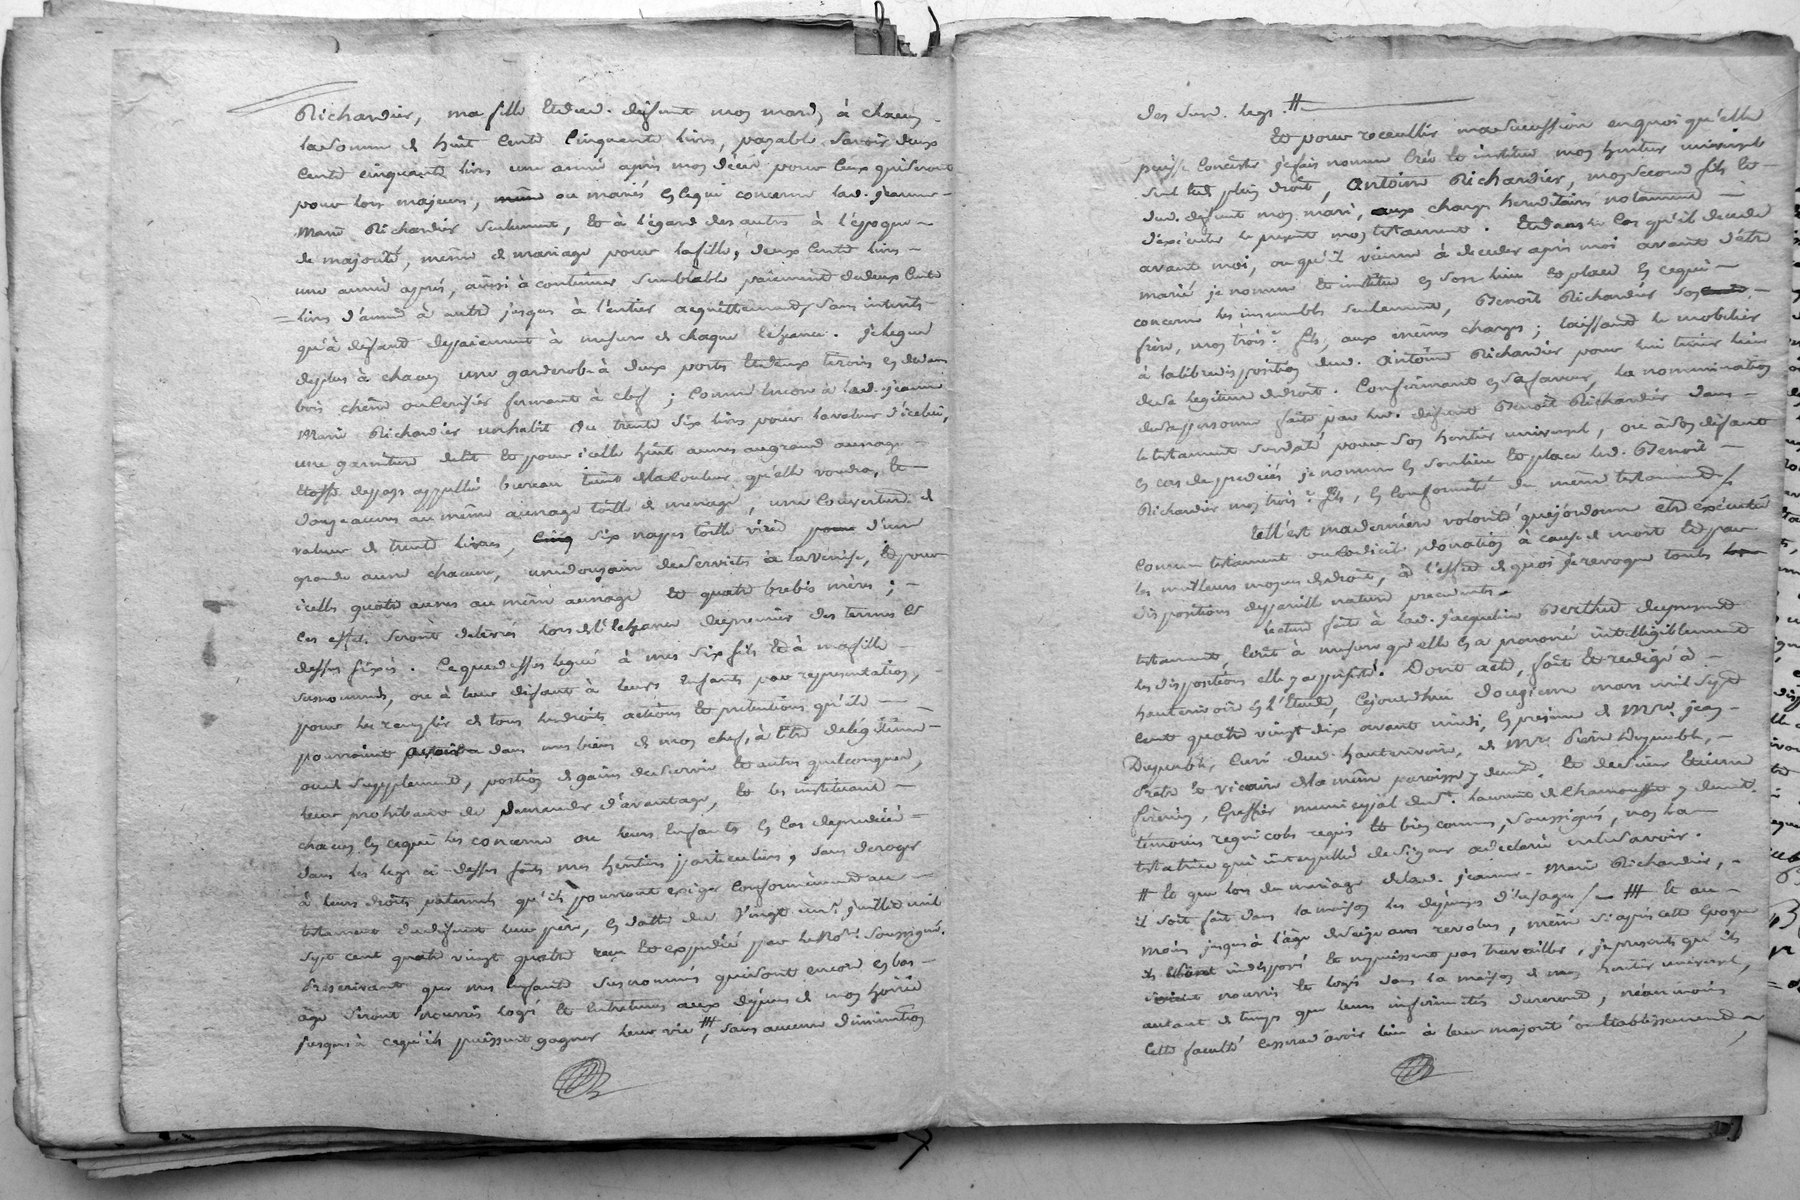 Richardier, ma fille et dud. défunt mon mary, à chacun
la somme de huit cents cinquante livres, payable savoir deux
cents cinquante livres une année après mon décès pour ceux qui seront
pour lors majeurs, même ou mariés en ce qui concerne lad. jeanne
marie Richardier seulement, et à l'égard des autres à l'époque
de majorité, même de mariage pour la fille, deux cents livres
une année après, ainsi à continuer semblable paiement de deux cents
livres d'année à autre jusques à l'entier acquittement, sans intérêts
qu'à défaut de paiement à mesure de chaque échéance. je legue
de plus à chacun une garderobe à deux portes et deux tiroirs en dedans
bois chêne ou cerisier fermant à clef ; comme encore à lad. jeanne
Marie Richardier un habit ou trente six livres pour la valeur d'icelui,
une garniture de lit et pour icelle huit aunes au grand aunage
étoffe de pays appellée bureau teint de la couleur qu'elle voudra, et
douze aunes au même aunage toille de menage, une couverture de
valeur de trente livres, cinq six nappes toille vixée pour d'une
grande aune chacune, une douzaine de serviettes à la venise, et pour
icelles quatre aunes au même aunage et quatre brebis mères ;
Ces effets seront délivrés lors de l'échéance du premier des termes cy
dessus fixés. Ce que dessus legué à mes six fils et à ma fille
susnommés, ou à leur défaut à leurs enfants par représentation,
pour les remplir de tous les droits actions et prétentions qu'ils
pourraient avoir dans mes biens de mon chef, à titre de légitime
ou de supplement, portion de gains de survie et autres quelconques,
leur prohibant de demander d'avantage, et les instituant
chacun en ce qui les concerne ou leurs enfants en cas de prédécès
dans les legs ci-dessus faits mes heritiers particuliers, sans deroger
à leurs droits paternels qu'ils pourront exiger conformément au
testament dudéfunt leur père, en datte du vingt un juillet mil
sept cent quatre vingt quatre reçu et expédié par le Nore. soussigné.
Prescrivant que mes enfants susnommés qui sont encore en bas
âge seront nourris logés et entretenus aux dépens de mon hoirie
jusques à ce qu'ils puissent gagner leur vie #, sans aucune diminution
des susd. legs. #
Et pour recueillir ma succession en quoi qu'elle
puisse consister je fais nomme créé et institue mon heritier universel
seul et de plein droit, Antoine Richardier, mon second fils et
dud. défunt mon mari, aux charges hereditaires notamment
d'exécuter le present mon testament. Et dans le cas qu'il decede
avant moi, ou qu'il vienne à deceder après moi avant d'être
marié je nomme et institue en son lieu et place en ce qui
concerne les immeubles seulement, Benoît Richardier son
frère, mon trois.e fils, aux mêmes charges ; laissant le mobilier
à la libre disposition dud. Antoine Richardier pour lui tenir lieu
de sa legitime de droit. Confirmant en sa faveur, la nomination
de sa personne faite par led. défunt Benoît Richardier dans
le testament susdaté pour son heritier universel, ou à son défaut
en cas de predécés je nomme en son lieu et place led. Benoît
Richardier mon trois.e fils, en conformité du même testament /
telle est ma dernière volonté que j'ordonne etre exécutée
comme testament ou codicile, donation à cause de mort et par
les meilleurs moyens de droit, à l'effet de quoi je revoque toutes
dispositions de pareille nature precedentes.
lecture faite à lad. jacqueline Berthet du present
testament, écrit à mesure qu'elle en a prononcé intelligiblement
les dispositions elle y a persisté. Dont acte, fait et redigé à
hauterivoire en l'Etude, cejourdhui douzieme mars mil sept
cent quatre vingt dix avant midi, en presence de Mre. jean
Dupuble, curé dud. hauterivoire, de Mre. Pierre Dupuble,
Prêtre et vicaire de la même paroisse y demt. et de sieur Etienne
Greffier municipal de St. Laurent de Chamousset y demt.
témoins regnicoles requis et bien connus, soussignés, non la
testatrice qui interpellée de signer a déclaré ne le savoir.
# Et que lors du mariage de lad. jeanne-Marie Richardier,
il soit fait dans la maison les depenses d'usages / # Et au
moins jusques à l'âge de seize ans revolus, même si après cette époque
ils étoient indisposés et ne puissent pas travailler, je prescris qu'ils
soient nourris et logés dans la maison de mon heritier universel,
autant de temps que leurs infirmités dureront, néanmoins
cette faculté cessera d'avoir lieu à leur majorité ou etablissement